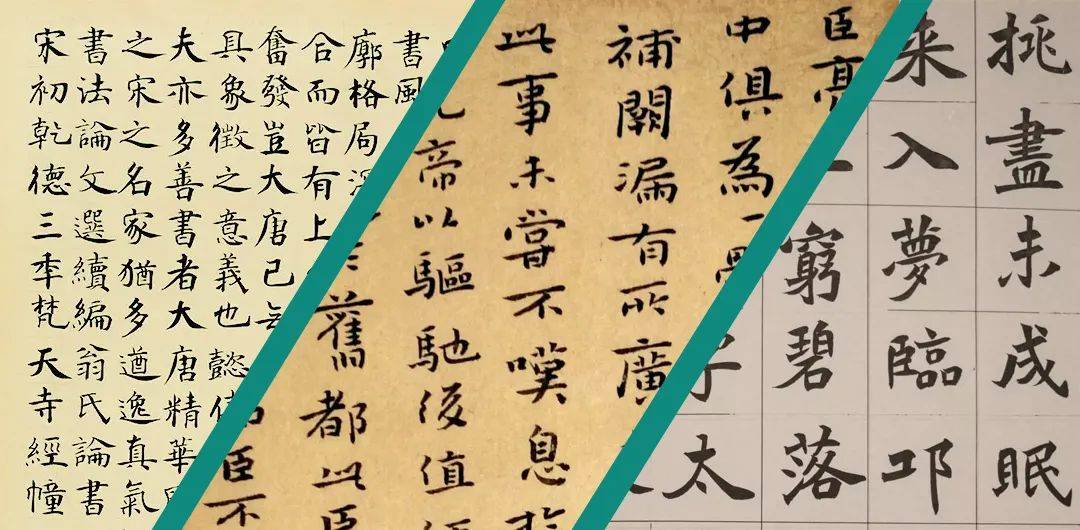 書風
廓格局
合而皆有上
奮發豈大唐已
具象徵之意義也懿
夫亦多善書者大唐精華
之宋之名家猶多遒逸真氣
書法論文選續編翁氏論書
宋初乾德三年梵天寺經幢
臣亮
中俱為一
補闕漏有所廣
此事未嘗不嘆息於
帝以驅馳後值
舊都此臣
臣不
挑盡未成眠
来入夢臨邛
窮碧落
太